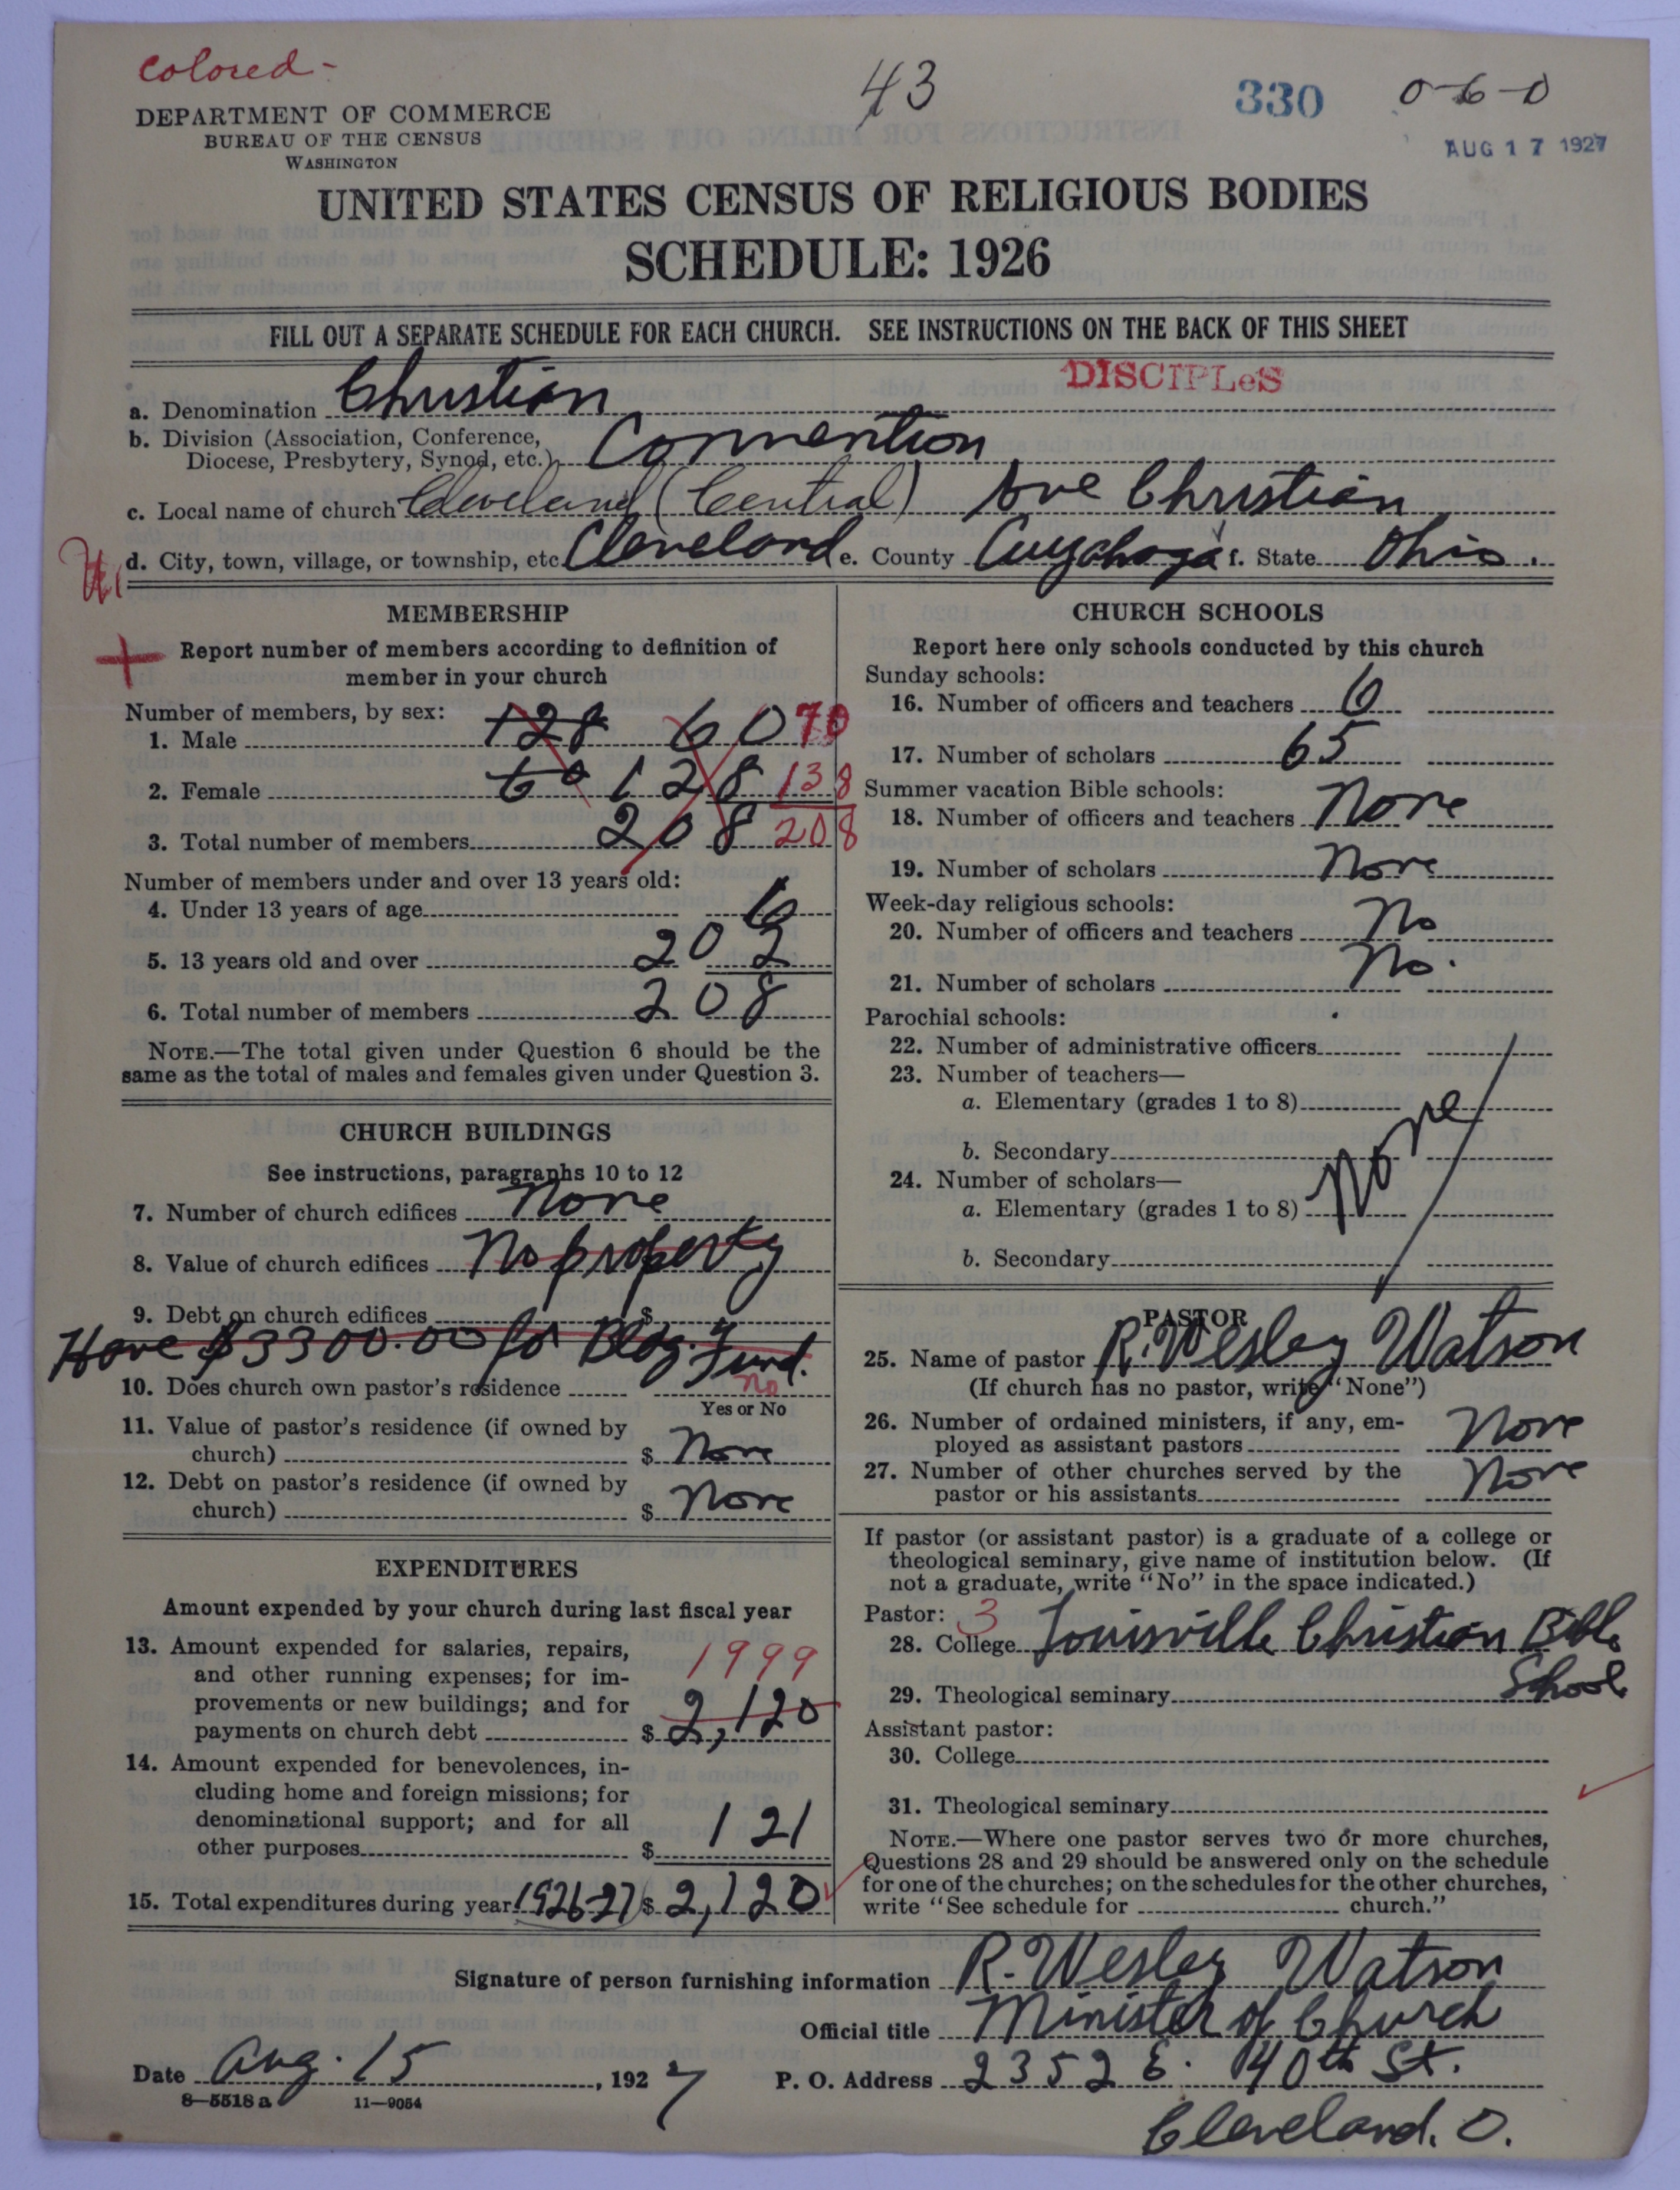 colored -
43
330
0-6-0
AUG 17 1927
DEPARTMENT OF COMMERCE
BUREAU OF THE CENSUS
WASHINGTON
UNITED STATES CENSUS OF RELIGIOUS BODIES
SCHEDULE: 1926
FILL OUT A SEPARATE SCHEDULE FOR EACH CHURCH. SEE INSTRUCTIONS ON THE BACK OF THIS SHEET
DISCIPLeS
a. Denomination Christian
b. Division (Association, Conference,
Diocese, Presbytery, Synod, etc.) Convention
c. Local name of church Cleveland (Central) Ave Christian
d. City, town, village, or township, etc. Cleveland e. County Cuyahoga f. State Ohio.
MEMBERSHIP
Report number of members according to definition of
member in your church
Number of members, by sex:
1. Male 128 60 70
2. Female 60 128 138
3. Total number of members 208 208
Number of members under and over 13 years old:
4. Under 13 years of age 6
5. 13 years old and over 202
6. Total number of members 208
NOTE.—The total given under Question 6 should be the
same as the total of males and females given under Question 3.
CHURCH BUILDINGS
See instructions, paragraphs 10 to 12
7. Number of church edifices None
8. Value of church edifices No property
9. Debt on church edifices $
Have $3300.00 for Bldg. Fund.
10. Does church own pastor's residence no
Yes or No
11. Value of pastor's residence (if owned by
church) $ None
12. Debt on pastor's residence (if owned by
church) $ None
EXPENDITURES
Amount expended by your church during last fiscal year
13. Amount expended for salaries, repairs,
and other running expenses; for im- 1999
provements or new buildings; and for
payments on church debt $ 2,120
14. Amount expended for benevolences, in-
cluding home and foreign missions; for
denominational support; and for all
other purposes $ 121
15. Total expenditures during year (1926-27) $ 2,120
CHURCH SCHOOLS
Report here only schools conducted by this church
Sunday schools:
16. Number of officers and teachers 6
17. Number of scholars 65
Summer vacation Bible schools:
18. Number of officers and teachers None
19. Number of scholars None
Week-day religious schools:
20. Number of officers and teachers No
21. Number of scholars No.
Parochial schools:
22. Number of administrative officers
23. Number of teachers—
a. Elementary (grades 1 to 8)
b. Secondary
24. Number of scholars— None
a. Elementary (grades 1 to 8)
b. Secondary
PASTOR
25. Name of pastor R. Wesley Watson
(If church has no pastor, write "None")
26. Number of ordained ministers, if any, em-
ployed as assistant pastors None
27. Number of other churches served by the
pastor or his assistants None
If pastor (or assistant pastor) is a graduate of a college or
theological seminary, give name of institution below. (If
not a graduate, write "No" in the space indicated.)
Pastor: 3
28. College Louisville Christian Bible
School
29. Theological seminary
Assistant pastor:
30. College
31. Theological seminary
NOTE.—Where one pastor serves two or more churches,
Questions 28 and 29 should be answered only on the schedule
for one of the churches; on the schedules for the other churches,
write "See schedule for church."
Signature of person furnishing information R. Wesley Watson
Official title Minister of Church
Date Aug. 15, 1927 P. O. Address 2352 E. 40th St.
Cleveland. O.
8-5518 a 11-9054